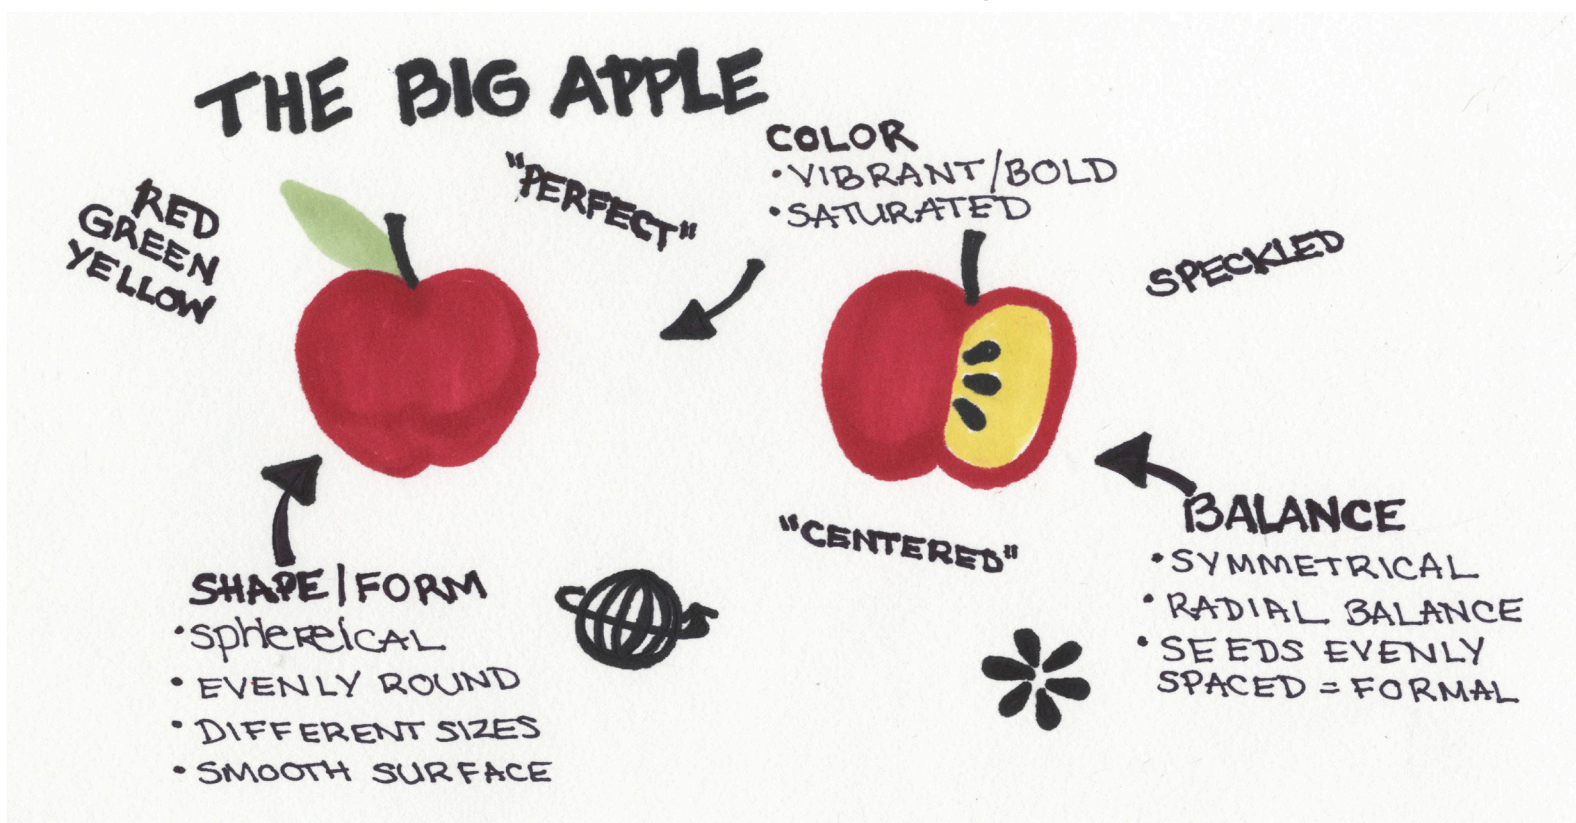 THE BIG APPLE
RED
GREEN
YELLOW
"PERFECT"
COLOR
• VIBRANT/BOLD
• SATURATED
SPECKLED
SHAPE/FORM
• SPHEREICAL
• EVENLY ROUND
• DIFFERENT SIZES
• SMOOTH SURFACE
"CENTERED"
BALANCE
• SYMMETRICAL
• RADIAL BALANCE
• SEEDS EVENLY
SPACED = FORMAL